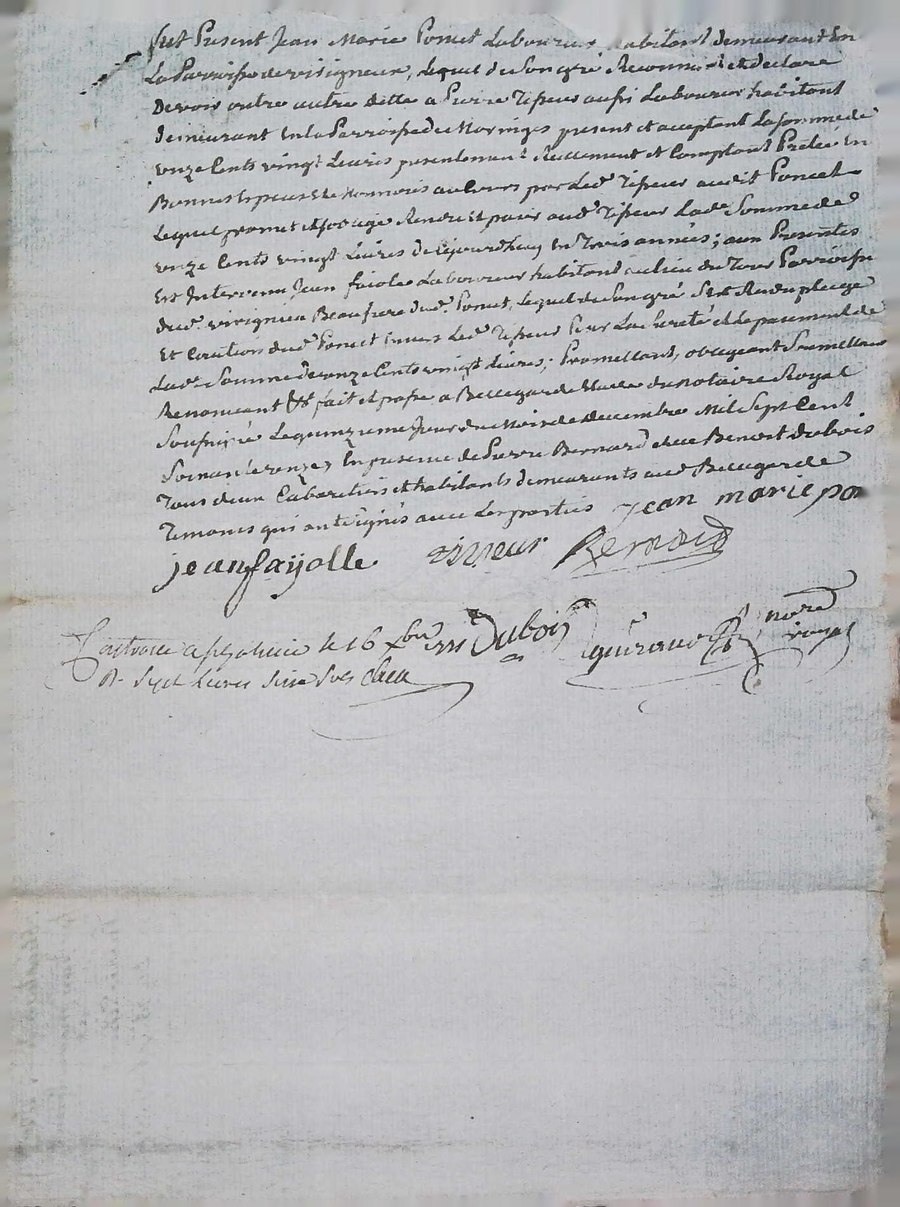 fut Present Jean Marie Poncet Laboureur habitant demeurant En
La Parroisse de virigneux, Lequel de Son gré Reconnoit et declare
Devoir outre autre dette a Pierre Tisseur aussi Laboureur habitant
demeurant En la Parroisse de Maringes present et acceptant La Somme de
onze Cents vingt Livres presentement Reellement et Comptant Pretée En
Bonnes Especes de Monnoies au Cours par Led. Tisseur audit Poncet
Lequel promet et sobige Rendre et paier aud. Tisseur Lade. Somme de
onze Cents vingt Livres De Cejourdhuy En Trois années; aux Presentes
Est Intervenu Jean faiole Laboureur habitant au lieu du Parroisse
dud. virigneu Beaufrere dud. Poncet, Lequel de Son gré Sest Rendu pleige
Et Caution dud. Poncet Envers Led. Tisseur Pour La Sureté et le paiement de
Lade. Somme de onze Cents vingt Livres; Promettant, obligeant Soumettant
Renonceant &c fait et passé a Bellegarde Etude du Notaire Royal
Soussigné Le quinzieme Jour du Mois de decembre Mil Sept Cent
En presence de Pierre Bernard et de Benoist Dubois
Tous deux Cabaretiers et habitants demeurants aud Bellegarde
Temoins qui ont signés avec Les parties Jean marie pon
jean faÿolle tisseur Bernard
Dubois nore royal
le 16 xbre
R. Sept Livres Seize Sols